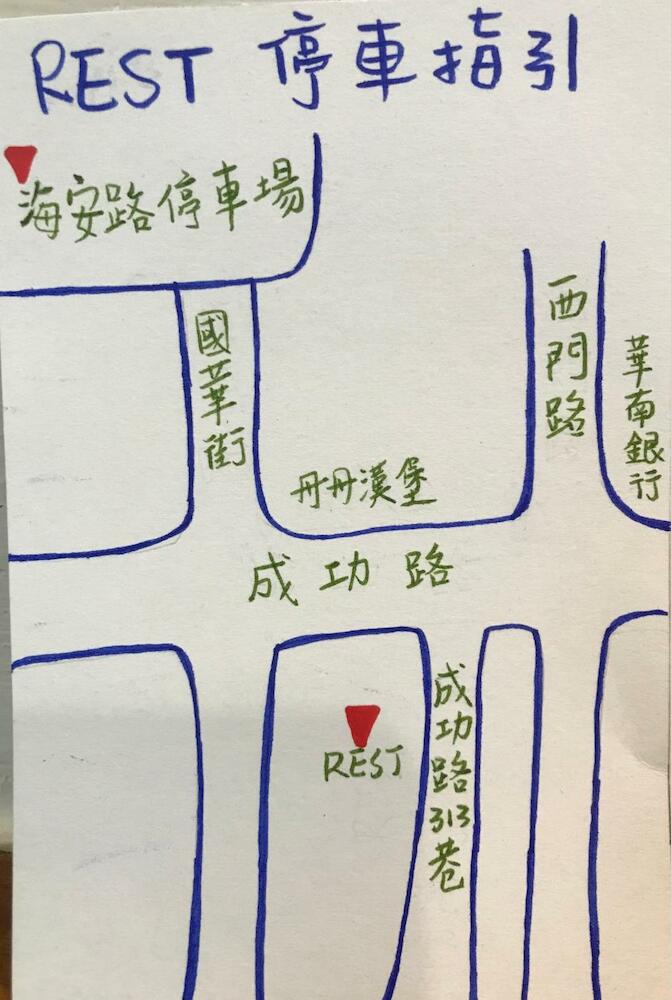 REST 停車指引
海安路停車場
國華街
西門路
華南銀行
丹丹漢堡
成功路
REST
成功路313巷